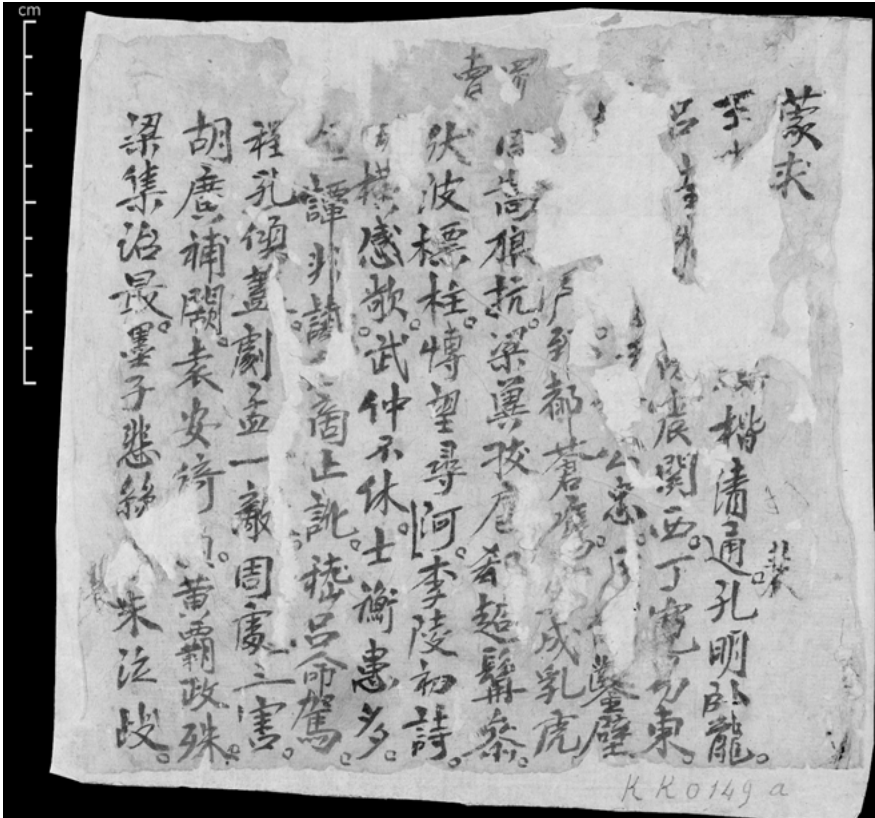 蒙求
王 楷清通。孔明卧龍。
裴
呂望 震關西。丁寬易東
公忠。 鑿壁
戶郅都蒼鷹 成乳虎
周嵩狼抗。梁冀拔扈郗超髯叅。
伏波標柱。愽望尋河。李陵初詩。
田横感歌。武仲不休。士衡患多。
譚非讖 商止訛。嵇呂命駕。
程孔傾蓋。劇孟一敵周處三害。
胡廣補闕。袁安倚 黄霸政殊。
梁集治最。墨子悲絲 朱泣歧。
曹
KK0149 a
cm